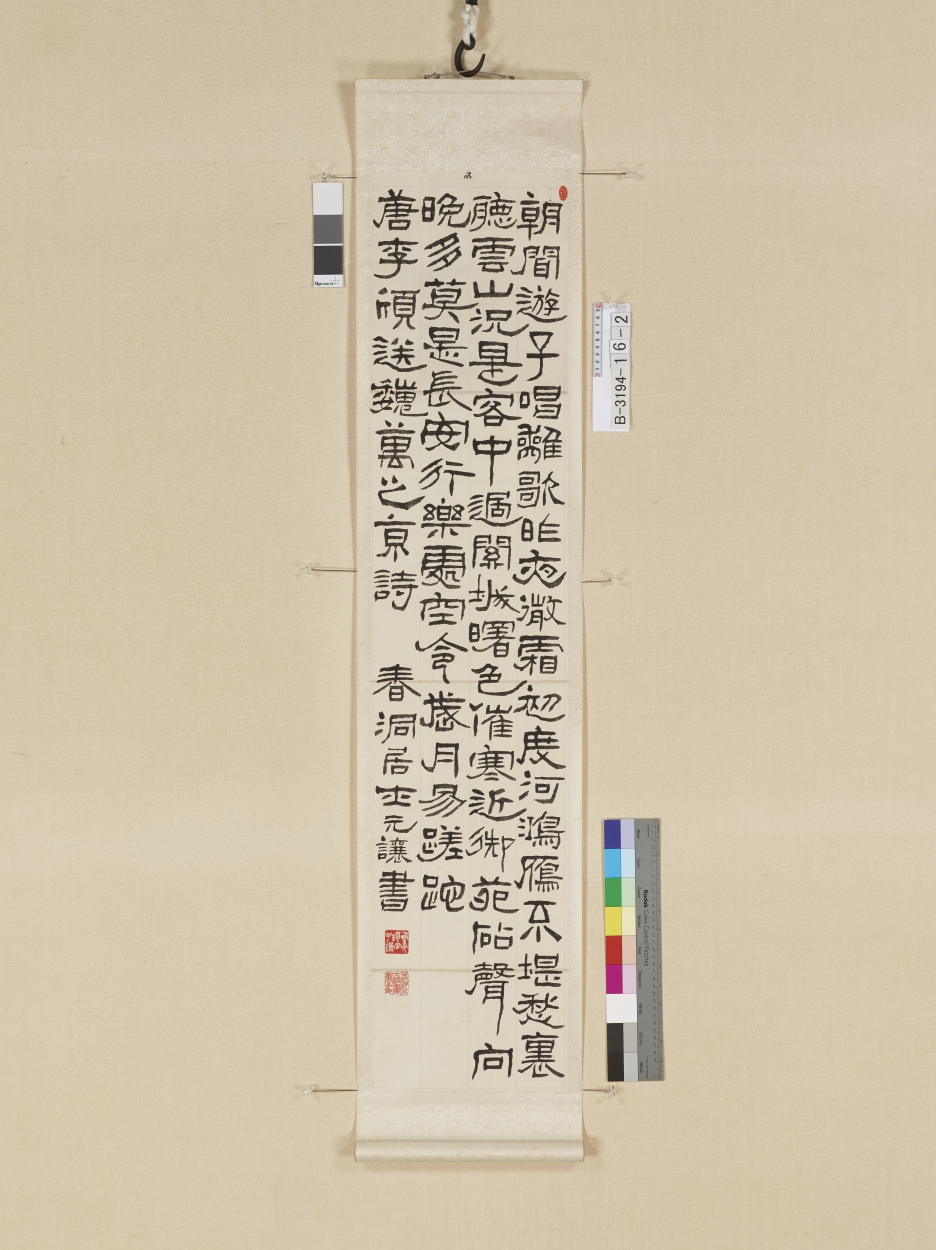 朝聞遊子唱離歌昨夜微霜初度河鴻鴈不堪愁裏
聽雲山況是客中過關城曙色催寒近御苑砧聲向
晚多莫是長安行樂處空令歲月易蹉跎
唐李頎送魏萬之京詩 春洞居士元讓書
B-3194-16-2
Kodak Color Control Patches